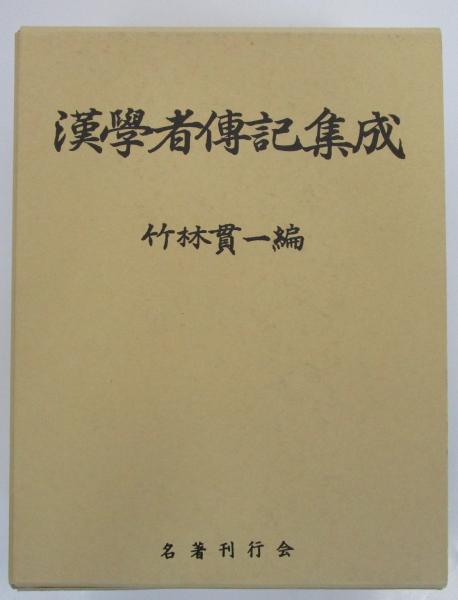 漢學者傳記集成
竹林貫一編
名著刊行会